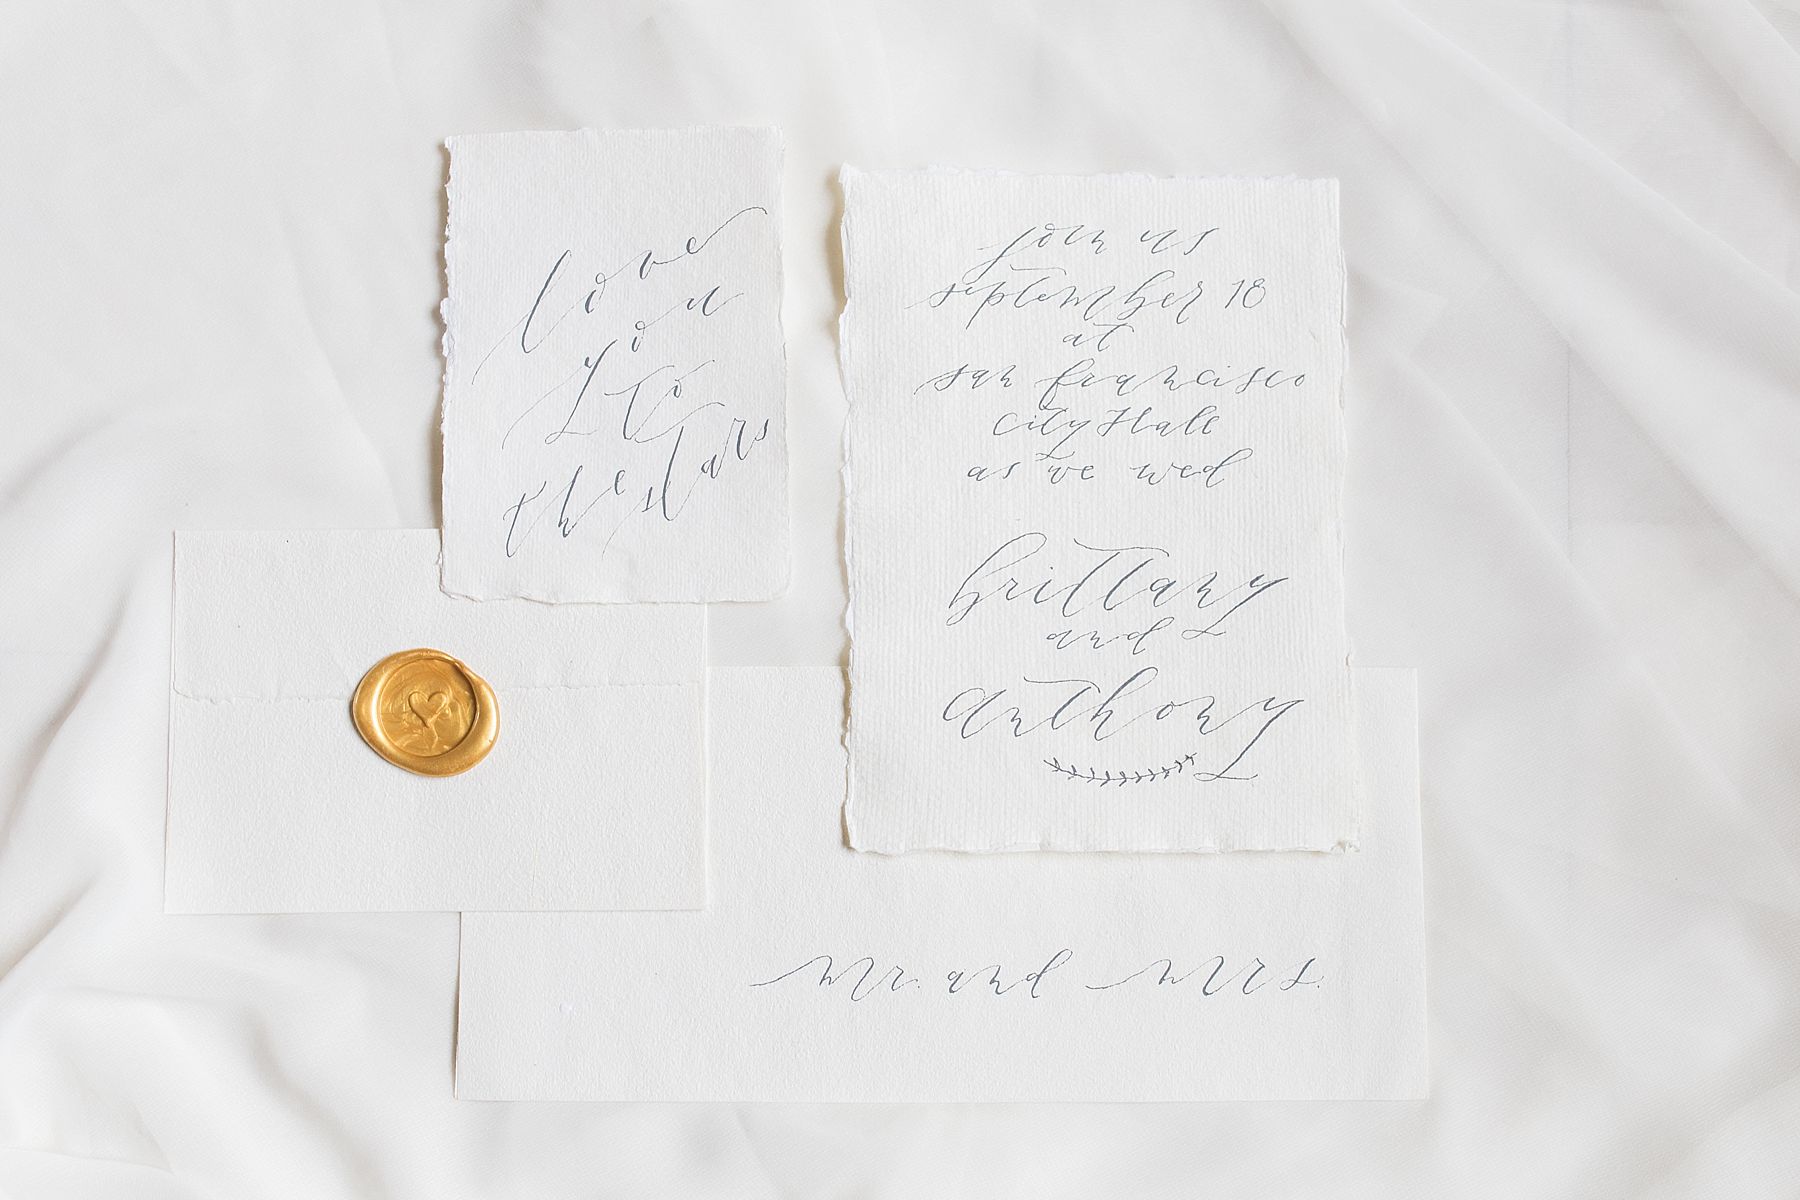 love
you
to
the stars
join us
september 18
at
san francisco
city Hall
as we wed
brittany
and
anthony
mr. and mrs.